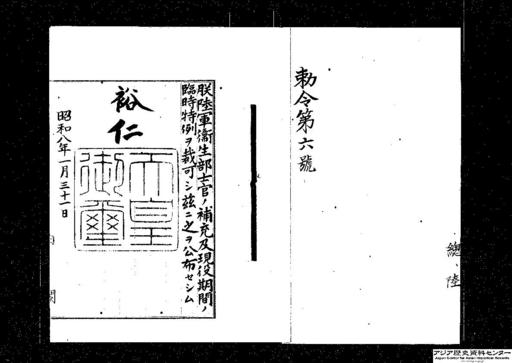 勅令第六號
總、陸
朕陸軍衞生部士官ノ補充及現役期間ノ
臨時特例ヲ裁可シ茲ニ之ヲ公布セシム
裕仁
天皇御璽
昭和八年一月三十一日
内閣
アジア歴史資料センター
Japan Center for Asian Historical Records